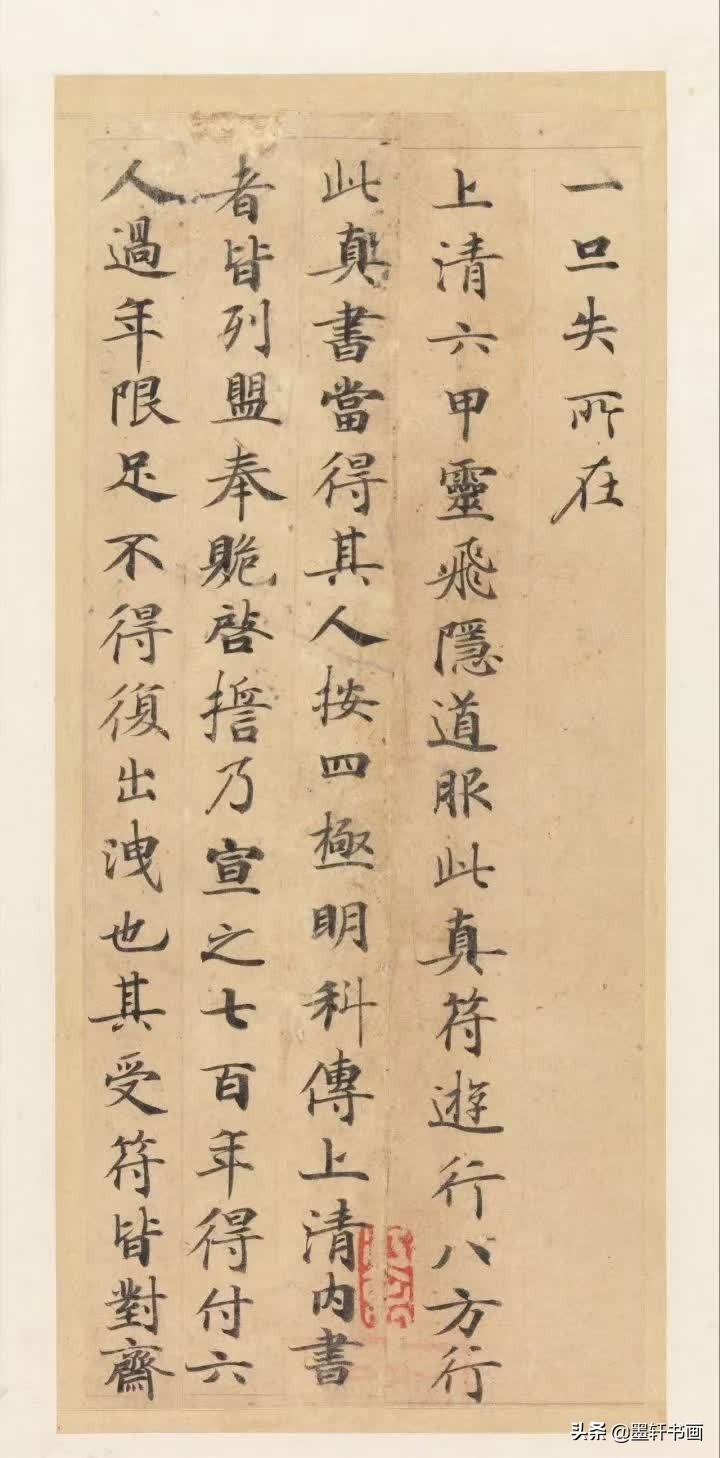 一旦失所在
上清六甲靈飛隱道服此真符遊行八方行
此真書當得其人按四極明科傳上清內書
者皆列盟奉贶啓誓乃宣之七百年得付六
人過年限足不得復出洩也其受符皆對齋
头条@墨轩书画